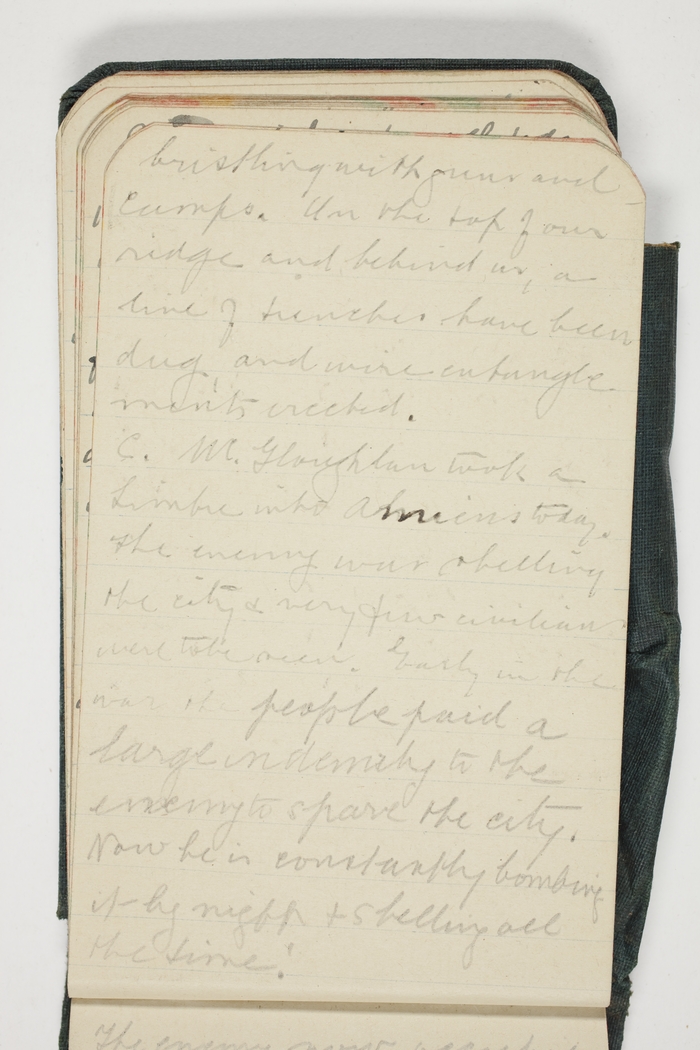 bristling with guns and
camps. On the top of our
ridge and behind us, a
line of trenches have been
dug, and wire entangle
ments erected.
C. Mc. Gloughlan took a
limbre into Amiens today.
The enemy was shelling
the city & very few civilians
were to be seen. Early in the
war the people paid a
large indemity to the
enemy to spare the city.
Now he is constantly bombing
it by night & shelling all
the time!
The enemy now